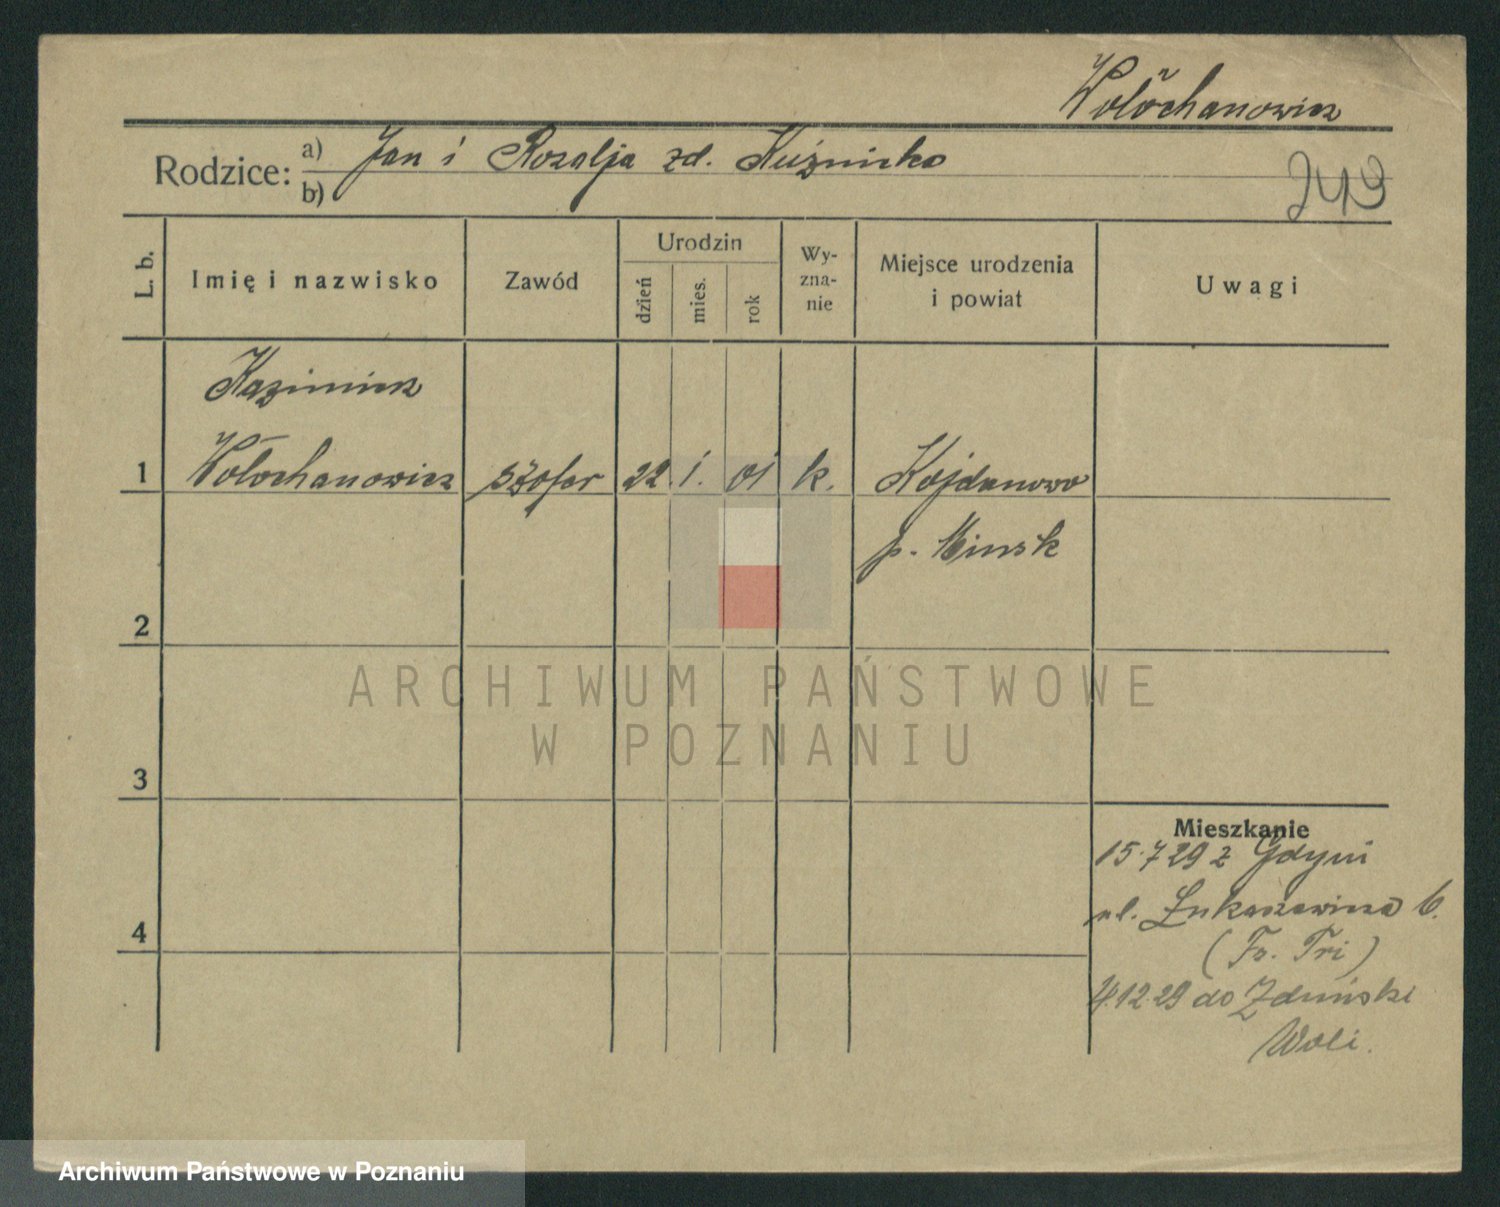 Wołochanowicz
Rodzice:
a) Jan i Rozalja zd. Kuźnicka
b)
243
L. b.
Imię i nazwisko
Zawód
Urodzin
dzień
mies.
rok
Wy-
zna-
nie
Miejsce urodzenia
i powiat
Uwagi
Kazimierz
1 Wołochanowicz szofer 22. 1. 01 k. Kojdanowo
p. Minsk
2
ARCHIWUM PAŃSTWOWE
W POZNANIU
3
Mieszkanie
15.7 29 z Gdyni
ul. Łukaszewicza 6.
4
(Fr. Tri)
4.12.29 do Zduński
Woli.
Archiwum Państwowe w Poznaniu